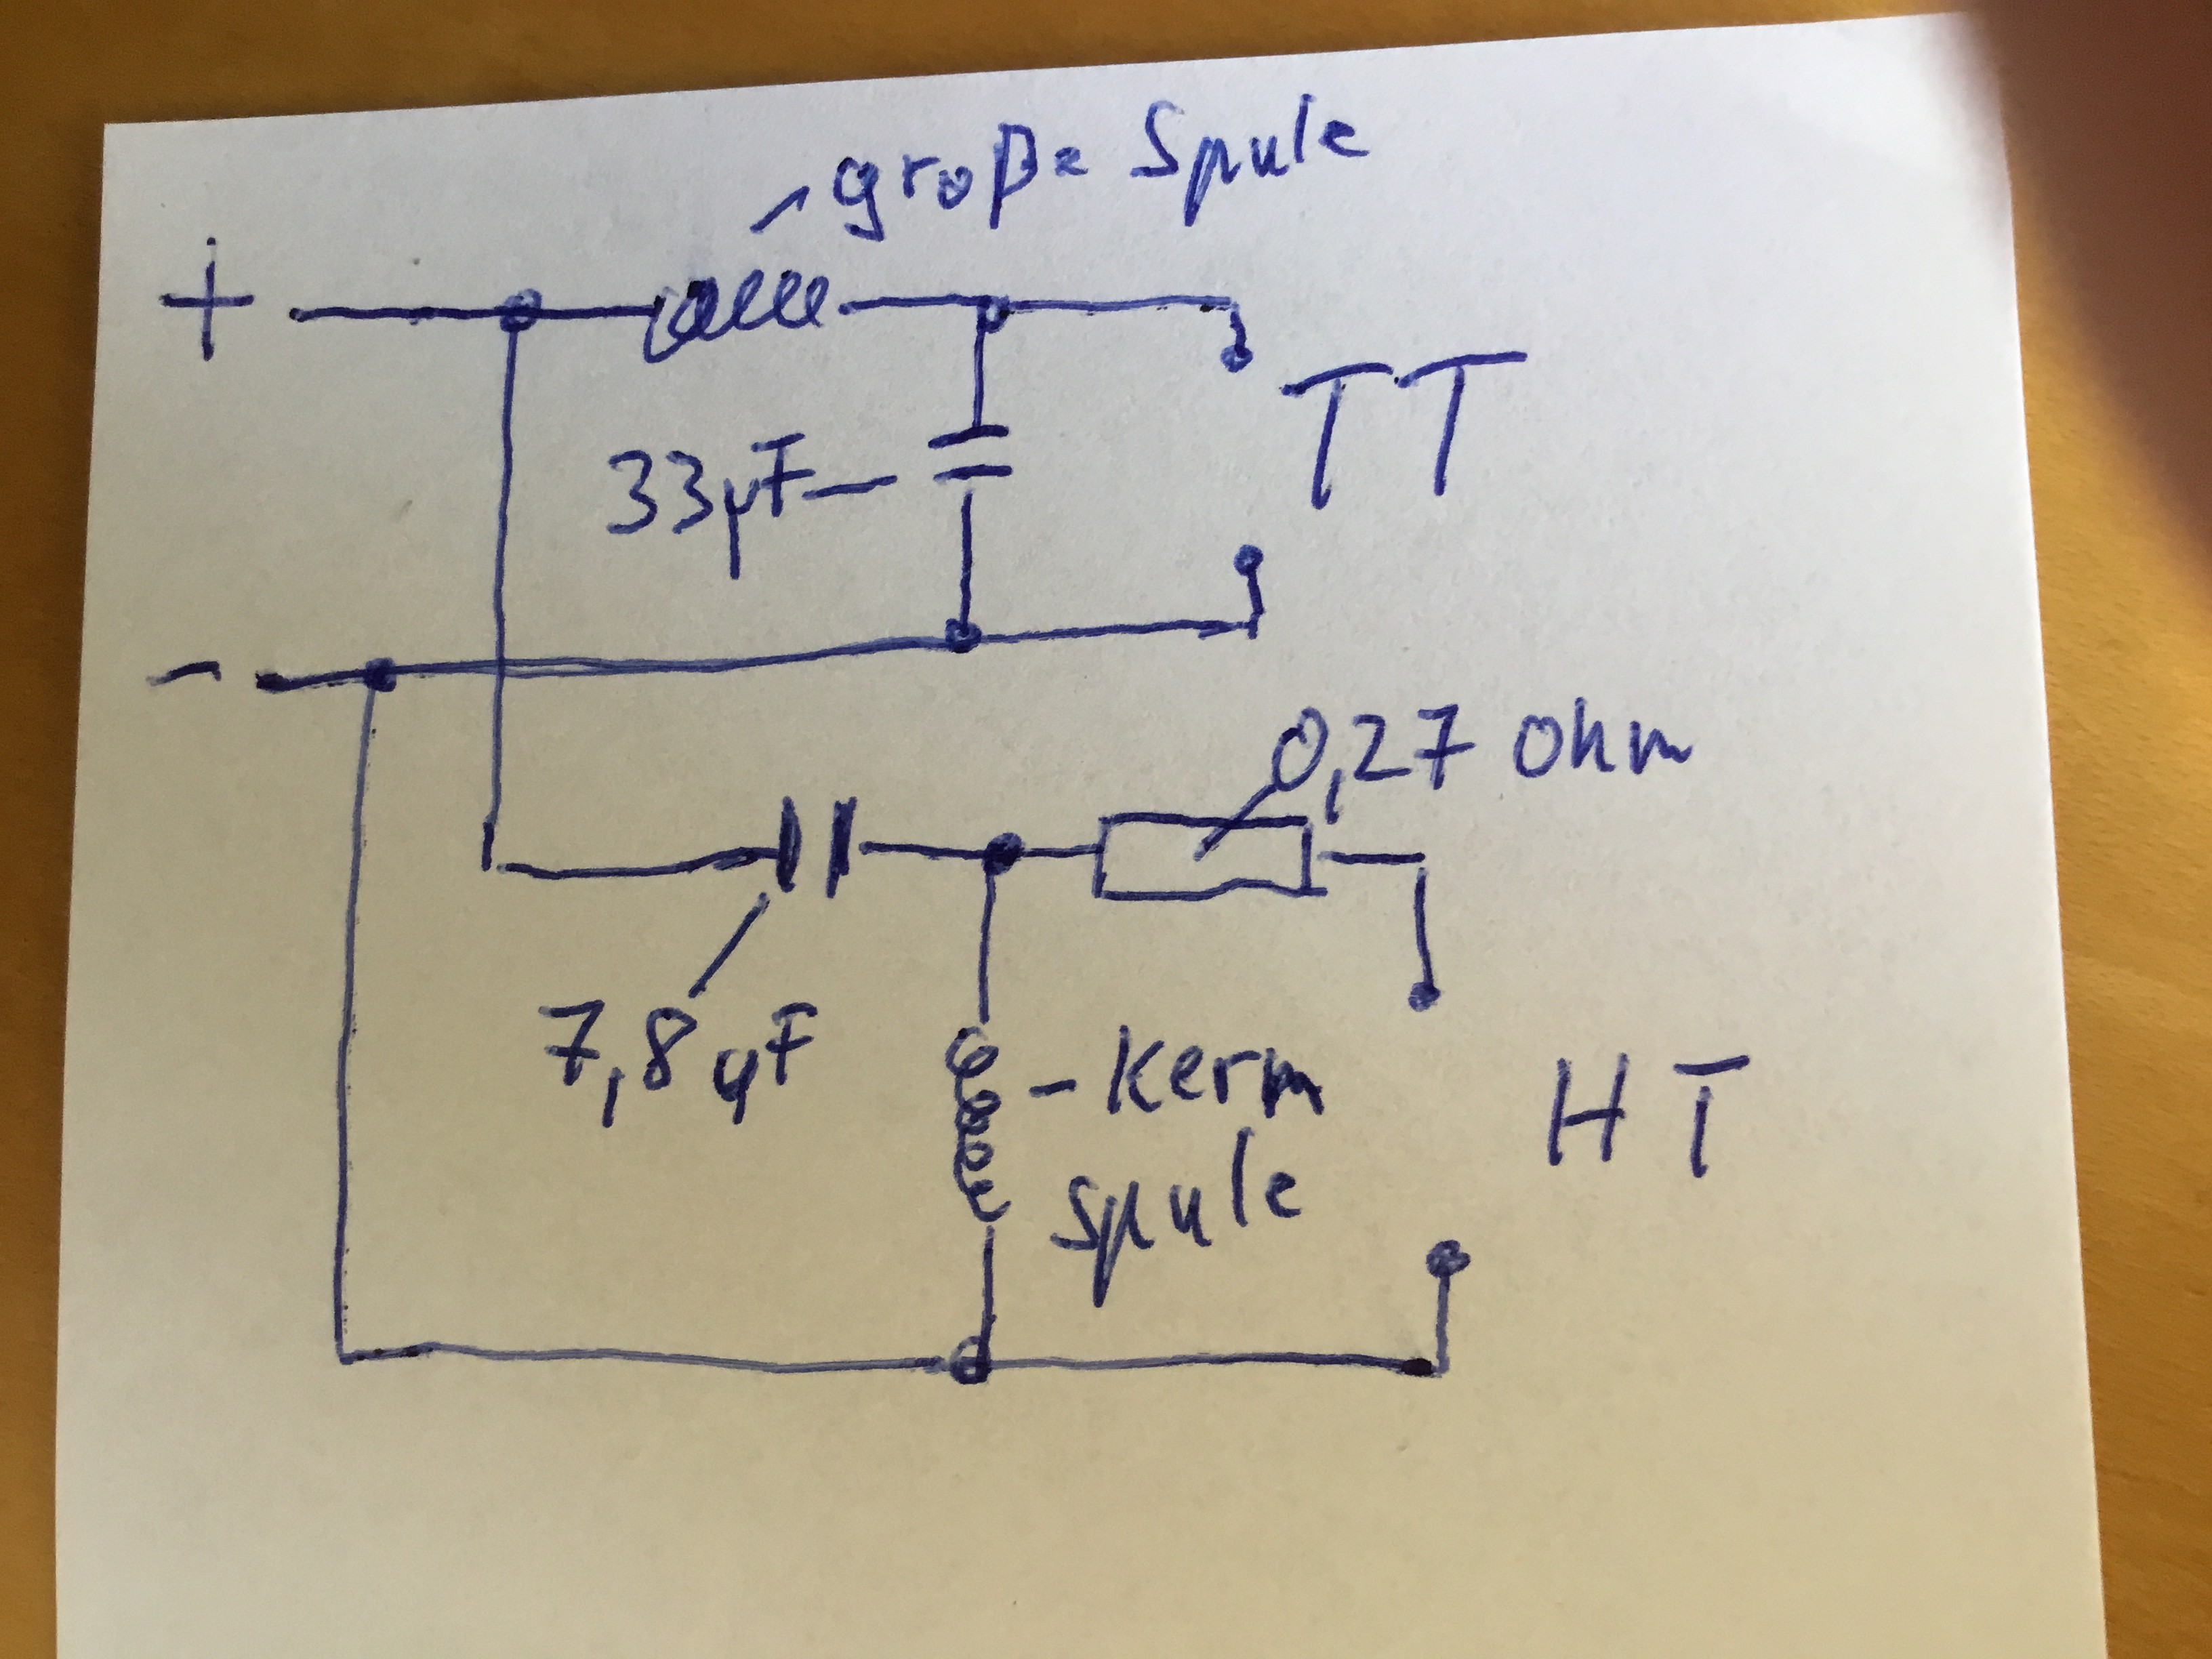 große Spule
+
TT
33µF
-
0,27 Ohm
7,8µF
Kern
spule
HT